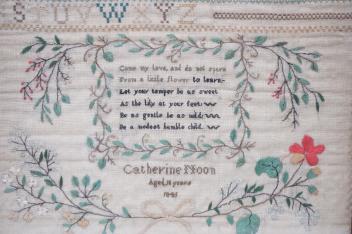 S T U V W X Y Z
Come my love, and do not spurn
From a little flower to learn;
Let your temper be as sweet
As the lily at your feet;
Be as gentle be as mild;
Be a modest humble child.
Catherine Moon
Aged 11 years